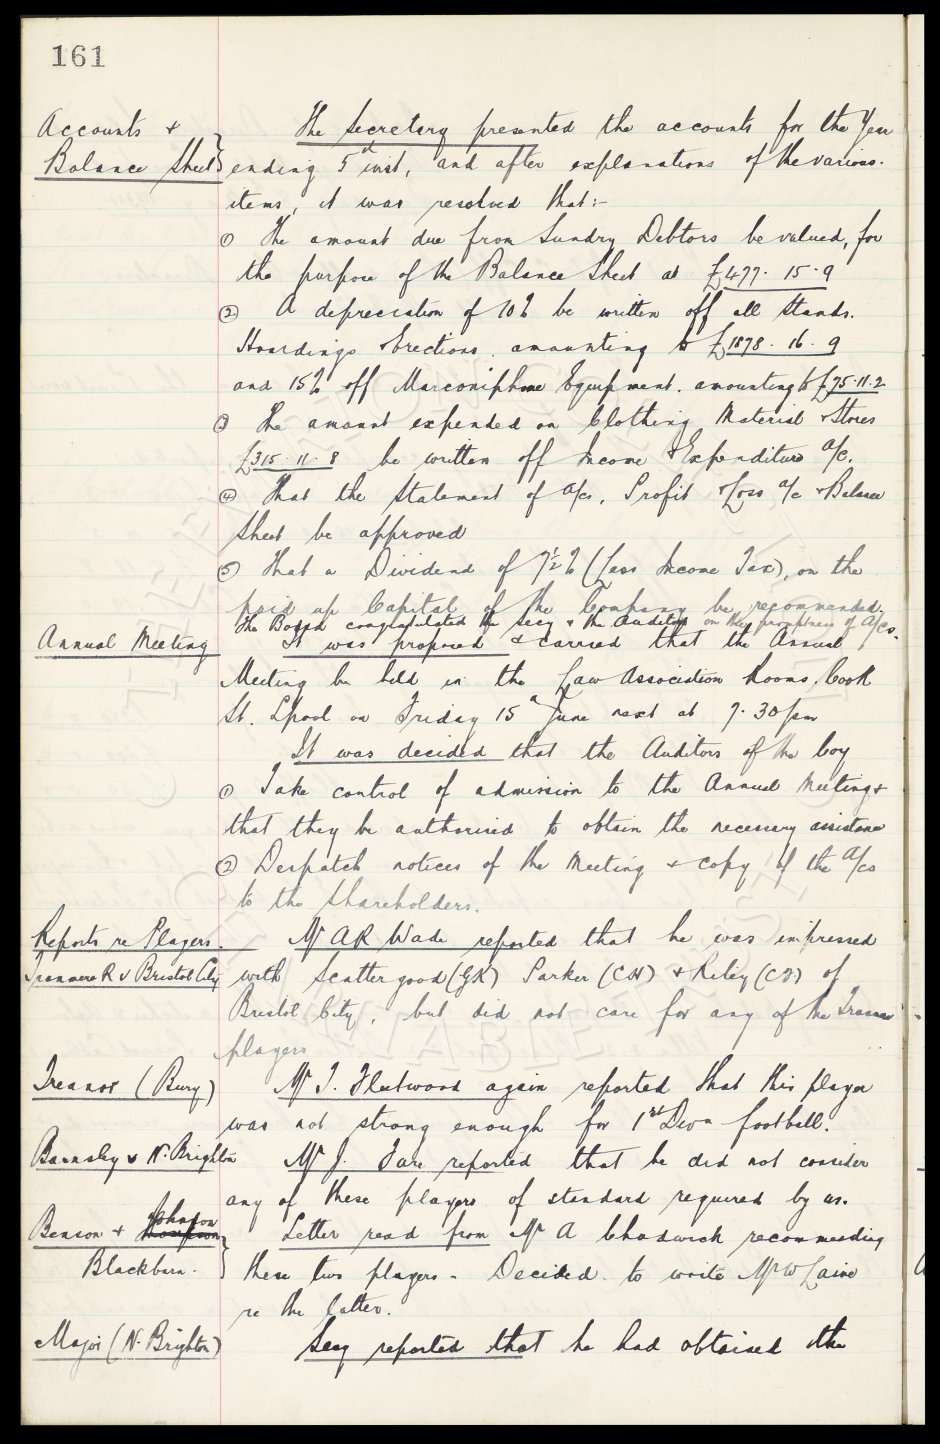 161
Accounts &
Balance Sheet
The Secretary presented the accounts for the Year
ending 5th inst, and after explanations of the various
items, it was resolved that:-
① The amount due from Sundry Debtors be valued, for
the purpose of the Balance Sheet at £477. 15. 9
② A depreciation of 10% be written off all Stands.
Hoardings & Erections. amounting to £1878. 16. 9
and 15% off Marconiphone Equipment. amounting to £75.11.2
③ The amount expended on Clothing Material & Stores
£315. 11. 8 be written off Income & Expenditure a/c.
④ That the Statement of a/cs, Profit & Loss a/c & Balance
Sheet be approved
⑤ That a Dividend of 7½% (less Income Tax), on the
paid up Capital of the Company be recommended.
The Board congratulated the Secy & the Auditors on the promptness of A/cs.
Annual Meeting
It was proposed & carried that the Annual
Meeting be held in the Law Association Rooms, Cook
St. Lpool on Friday 15th June next at 7.30 pm
It was decided that the Auditors of the Coy
① Take control of admission to the Annual Meeting &
that they be authorised to obtain the necessary assistance
② Despatch notices of the Meeting & copy of the a/cs
to the Shareholders.
Reports re Players.
Tranmere R v Bristol City
Mr AR Wade reported that he was impressed
with Scattergood (GK) Parker (CH) & Riley (CF) of
Bristol City, but did not care for any of the Tranmere
players
Treanor (Bury)
Mr T. Fleetwood again reported that this player
was not strong enough for 1st Divn football.
Barnsley v N. Brighton
Mr J. Fare reported that he did not consider
any of these players of standard required by us.
Benson & Johnson
Blackburn.
Letter read from Mr A Chadwick recommending
these two players - Decided to write Mr W Laine
re the latter.
Major (N. Brighton)
Secy reported that he had obtained the